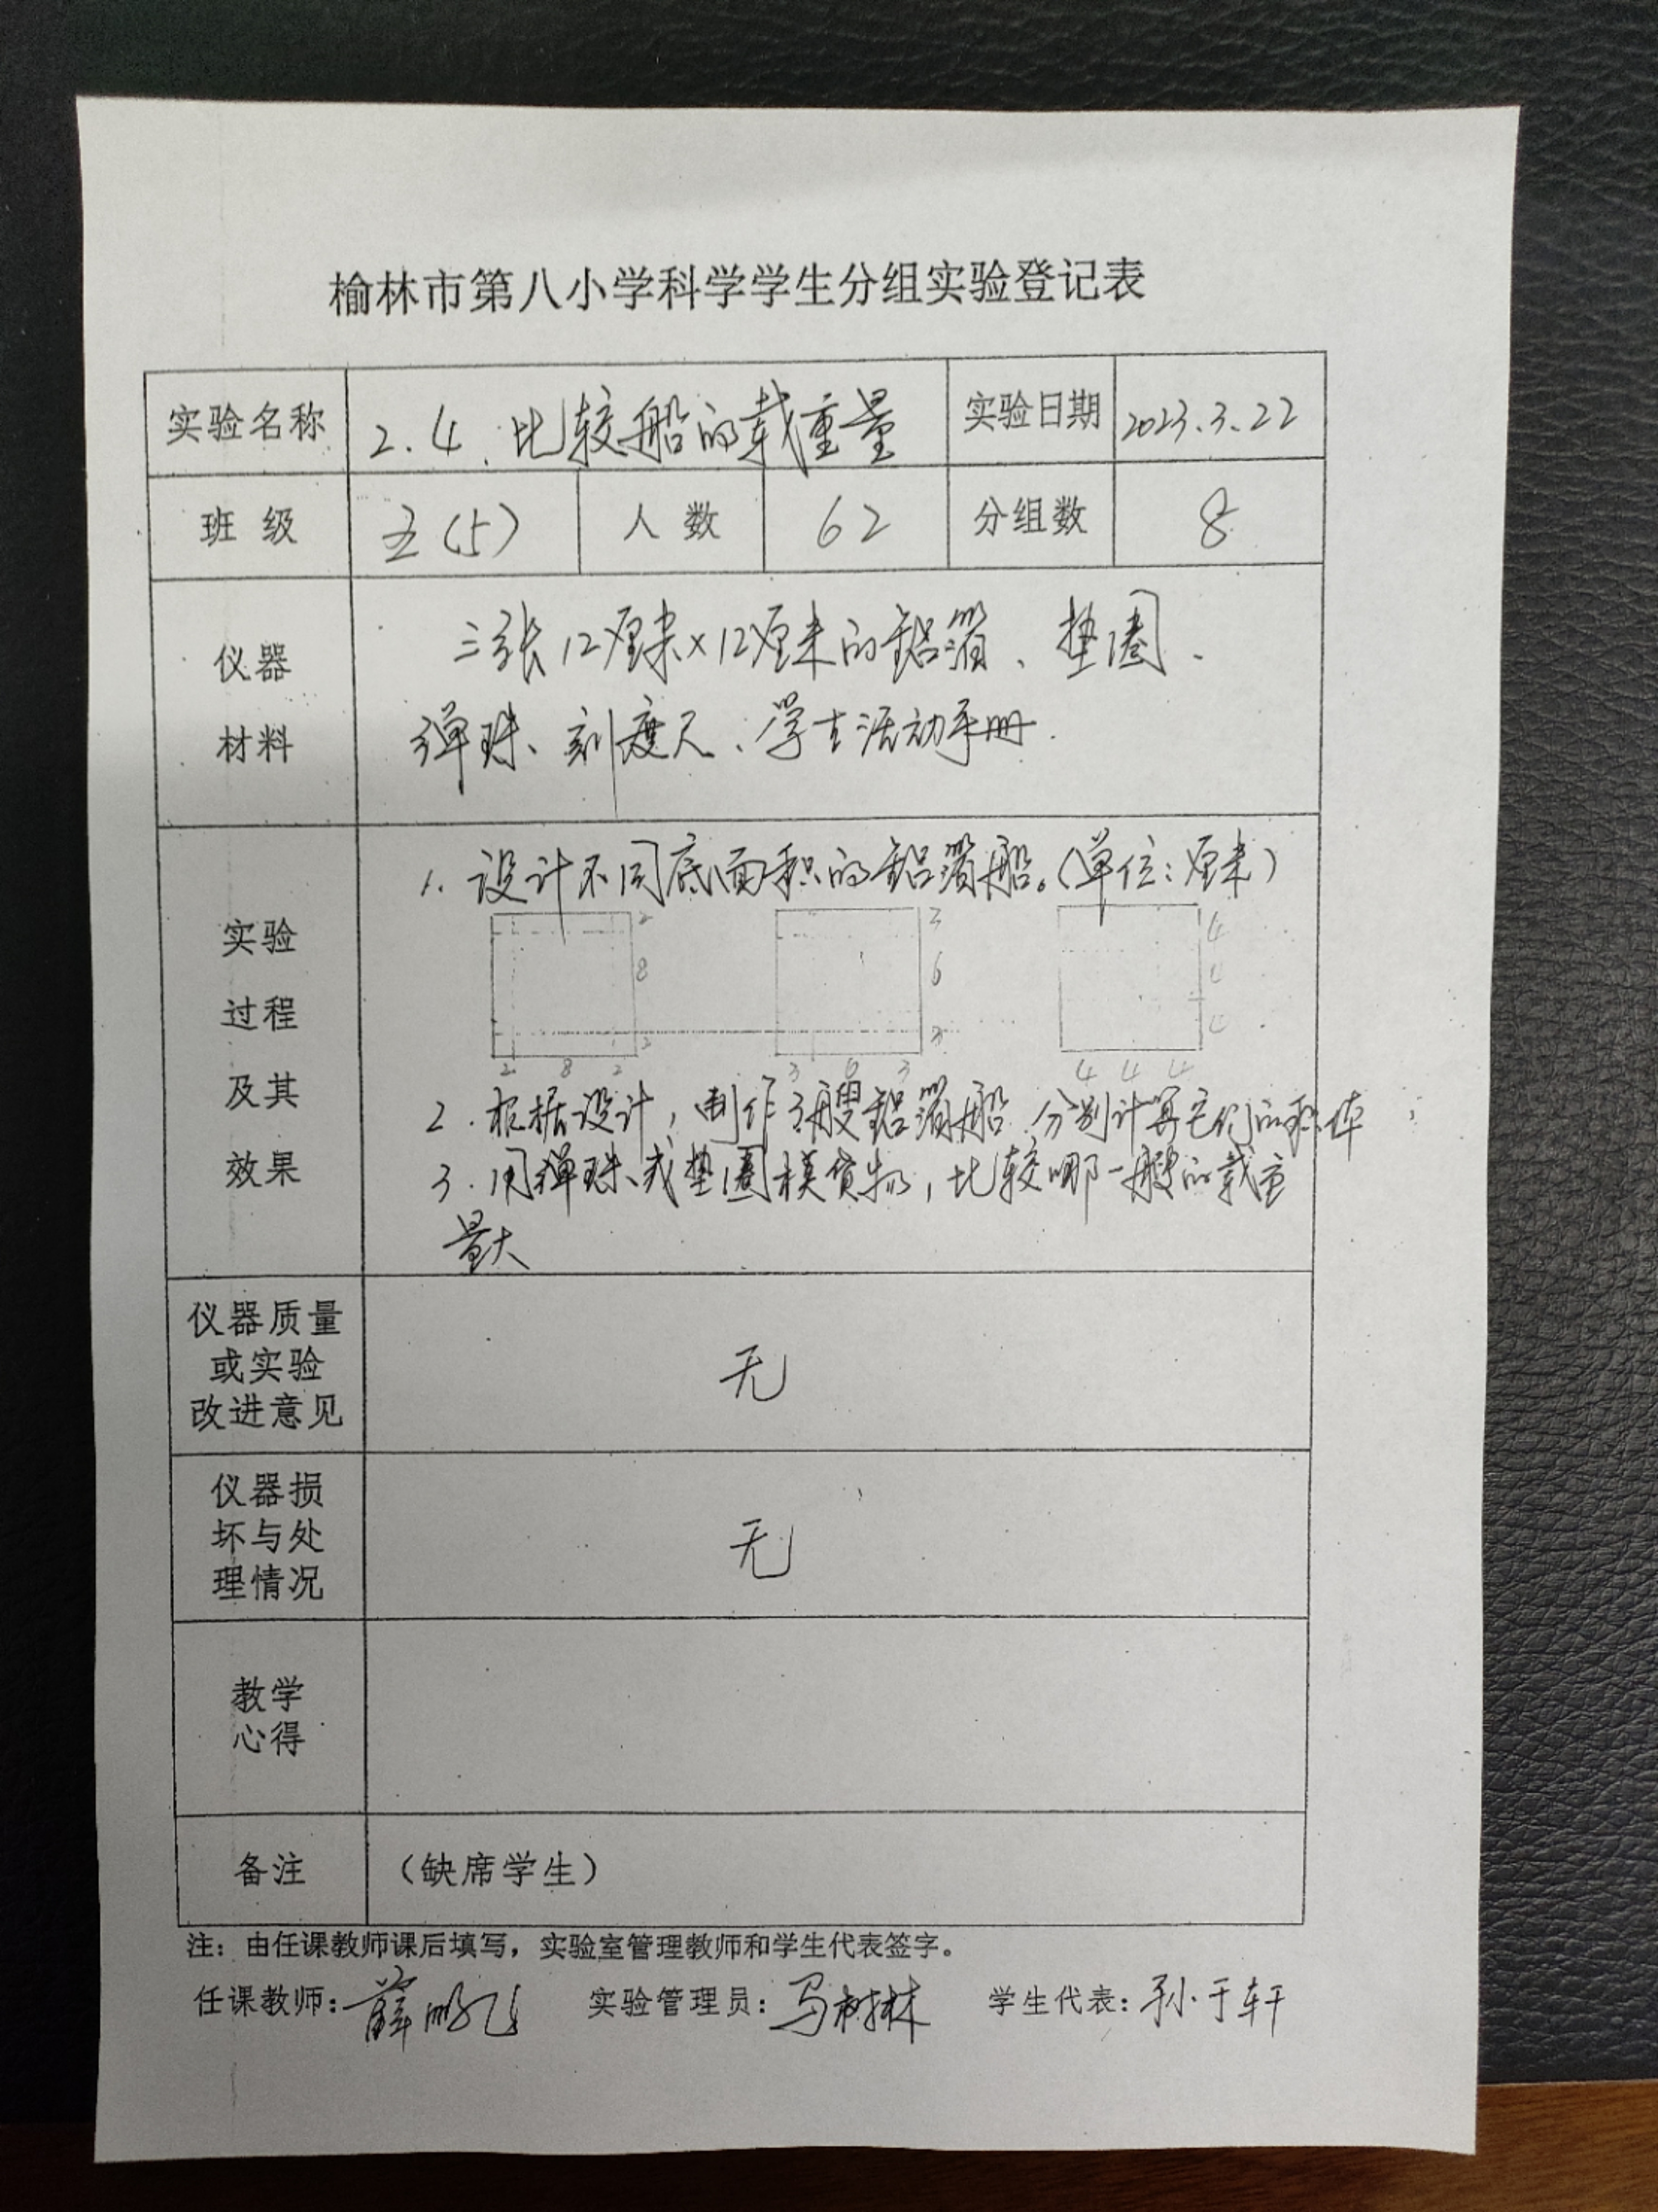 榆林市第八小学科学学生分组实验登记表
实验名称 2.4.比较船的载重量 实验日期 2023.3.22
班 级 五(5) 人 数 62 分组数 8
仪器
材料
三张12厘米×12厘米的铝箔、垫圈、
弹珠、刻度尺、学生活动手册.
实验
过程
及其
效果
1. 设计不同底面积的铝箔船。(单位:厘米)
2 3 4
8 6 4
2 3 4
2 8 2 3 6 3 4 4 4
2. 根据设计,制作3艘铝箔船 分别计算它们的积体
3. 用弹珠或垫圈模货物,比较哪一艘的载重
量大
仪器质量
或实验
改进意见
无
仪器损
坏与处
理情况
无
教学
心得
备注 (缺席学生)
注:由任课教师课后填写,实验室管理教师和学生代表签字。
任课教师:薛鹏飞 实验管理员:马树林 学生代表:孙于轩